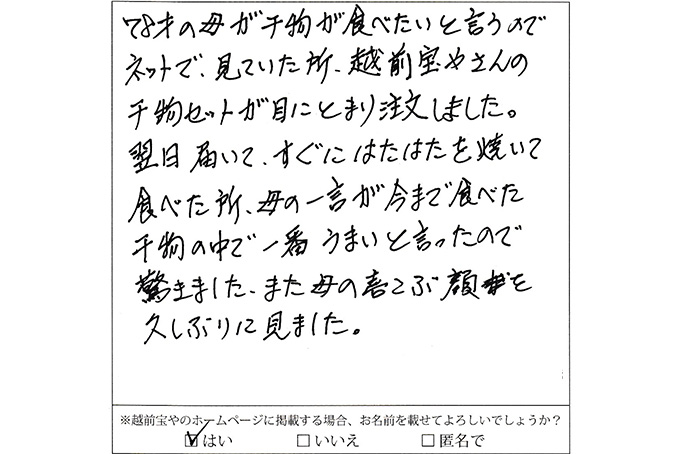 78才の母が干物が食べたいと言うので
ネットで、見ていた所、越前宝やさんの
干物セットが目にとまり注文しました。
翌日届いて、すぐにはたはたを焼いて
食べた所、母の一言が今まで食べた
干物の中で一番うまいと言ったので
驚きました、また母の喜こぶ顔を
久しぶりに見ました。
※越前宝やのホームページに掲載する場合、お名前を載せてよろしいでしょうか？
☑はい □いいえ □匿名で